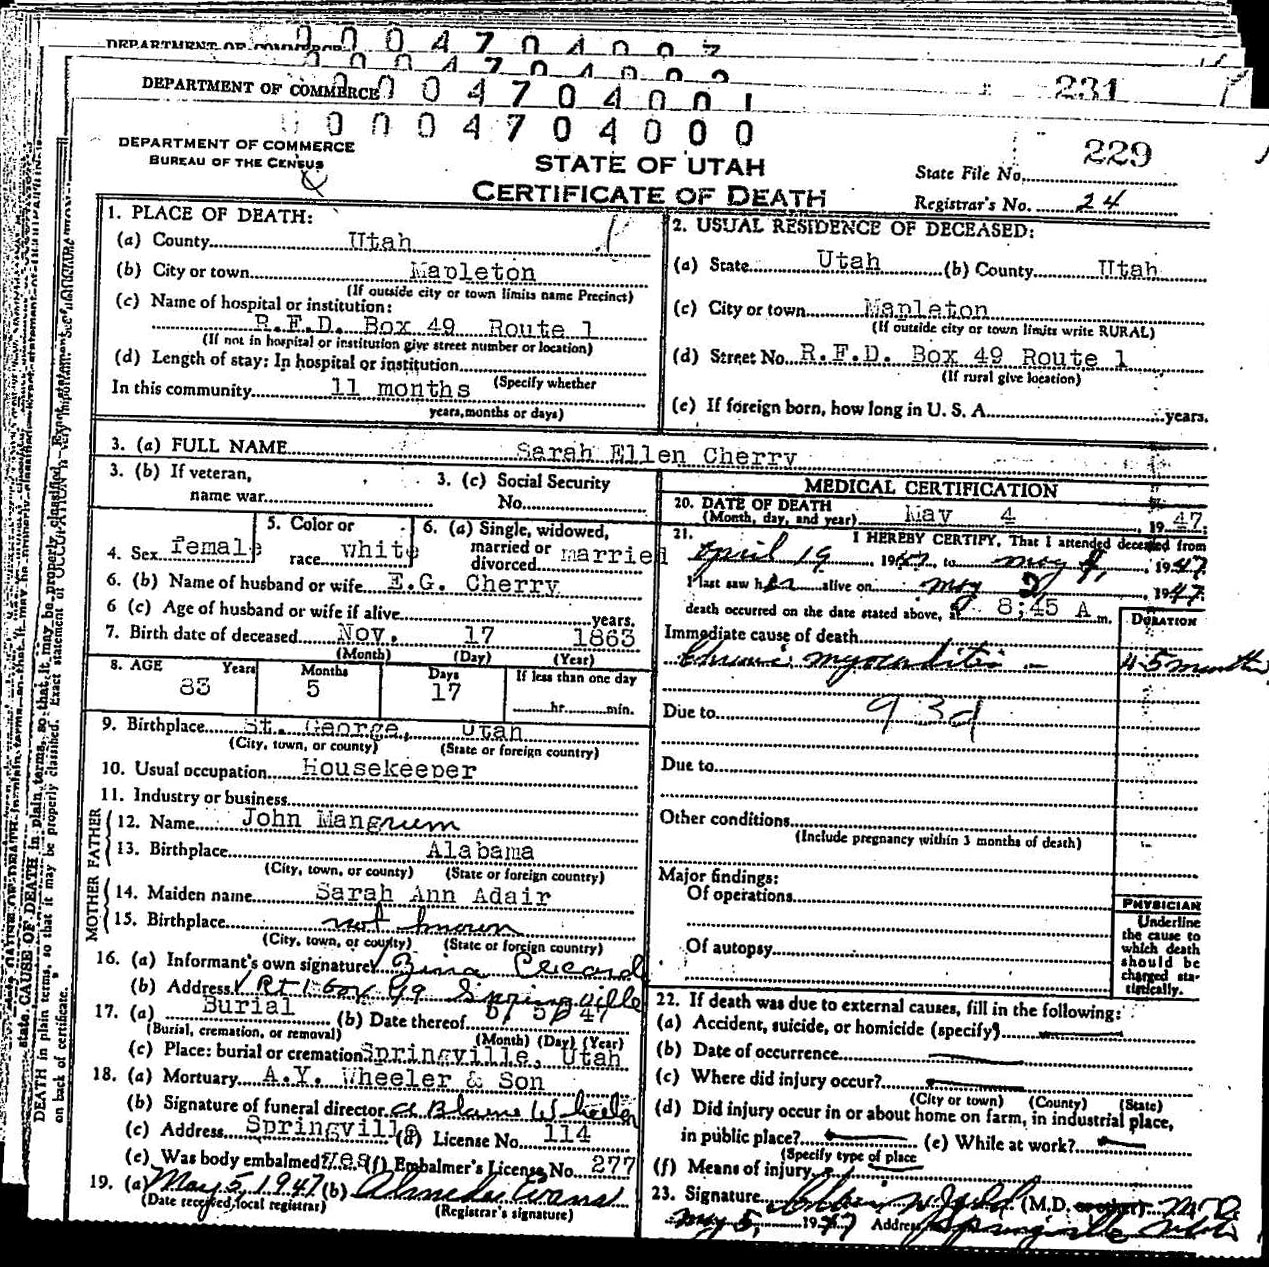 DEPARTMENT OF COMMERCE 0004704002
DEPARTMENT OF COMMERCE 0004704001 231
0004704000
DEPARTMENT OF COMMERCE
BUREAU OF THE CENSUS
STATE OF UTAH
CERTIFICATE OF DEATH
State File No. 229
Registrar's No. 24
1. PLACE OF DEATH:
(a) County Utah
(b) City or town Mapleton
(If outside city or town limits name Precinct)
(c) Name of hospital or institution:
R.F.D. Box 49 Route 1
(If not in hospital or institution give street number or location)
(d) Length of stay: In hospital or institution
(Specify whether
In this community 11 months
years, months or days)
2. USUAL RESIDENCE OF DECEASED:
(a) State Utah (b) County Utah
(c) City or town Mapleton
(If outside city or town limits write RURAL)
(d) Street No. R.F.D. Box 49 Route 1
(If rural give location)
(e) If foreign born, how long in U. S. A. years.
3. (a) FULL NAME Sarah Ellen Cherry
3. (b) If veteran,
name war
3. (c) Social Security
No.
4. Sex female
5. Color or
race white
6. (a) Single, widowed,
married or
divorced married
6. (b) Name of husband or wife E.G. Cherry
6 (c) Age of husband or wife if alive years.
7. Birth date of deceased Nov. 17 1863
(Month) (Day) (Year)
8. AGE Years Months Days If less than one day
83 5 17 hr. min.
9. Birthplace St. George, Utah
(City, town, or county) (State or foreign country)
10. Usual occupation Housekeeper
11. Industry or business
FATHER
12. Name John Mangrum
13. Birthplace Alabama
(City, town, or county) (State or foreign country)
MOTHER
14. Maiden name Sarah Ann Adair
15. Birthplace not known
(City, town, or county) (State or foreign country)
16. (a) Informant's own signature Zina
(b) Address Rt 1 Box 49 Springville
17. (a) Burial (b) Date thereof 5/ 5/ 47
(Burial, cremation, or removal) (Month) (Day) (Year)
(c) Place: burial or cremation Springville, Utah
18. (a) Mortuary A.Y. Wheeler & Son
(b) Signature of funeral director A Blaine Wheeler
(c) Address Springville (d) License No. 114
(e) Was body embalmed? yes (f) Embalmer's License No. 277
19. (a) May 5, 1947 (b) Evans
(Date received, local registrar) (Registrar's signature)
MEDICAL CERTIFICATION
20. DATE OF DEATH
(Month, day, and year) May 4, 1947.
21. I HEREBY CERTIFY, That I attended deceased from
April 19, 1947, to May 4, 1947.
I last saw her alive on May 2, 1947.
death occurred on the date stated above, at 8:45 A m.
DURATION
Immediate cause of death
Chronic myocarditis 4-5 months
Due to 93d
Due to
Other conditions
(Include pregnancy within 3 months of death)
Major findings:
Of operations
Of autopsy
PHYSICIAN
Underline
the cause to
which death
should be
charged sta-
tistically.
22. If death was due to external causes, fill in the following:
(a) Accident, suicide, or homicide (specify)
(b) Date of occurrence
(c) Where did injury occur?
(City or town) (County) (State)
(d) Did injury occur in or about home on farm, in industrial place,
in public place? (e) While at work?
(Specify type of place
(f) Means of injury
23. Signature (M.D. or other) M.D.
May 5, 1947 Address Springville Utah